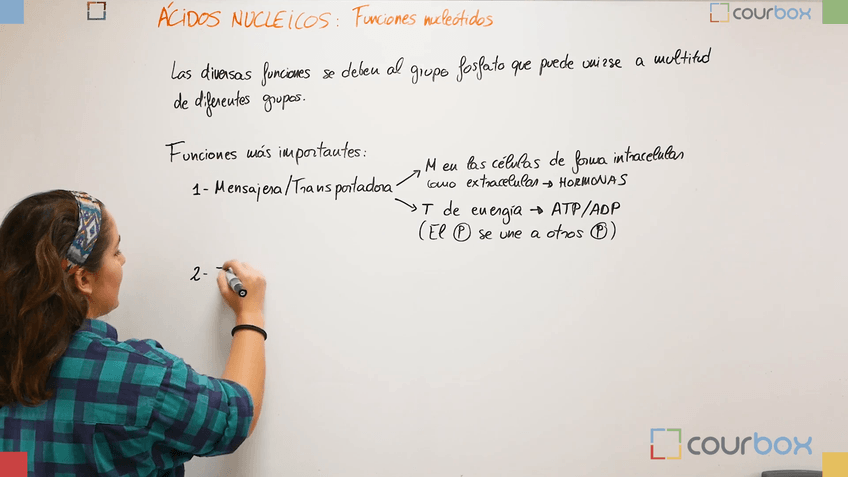 ÁCIDOS NUCLEICOS: Funciones nucleótidos
courbox
Las diversas funciones se deben al grupo fosfato que puede unirse a multitud
de diferentes grupos.
Funciones más importantes:
M en las células de forma intracelular
como extracelular → HORMONAS
1- Mensajera/Transportadora
T de energía → ATP/ADP
(El Ⓟ se une a otros Ⓟ)
2-
courbox